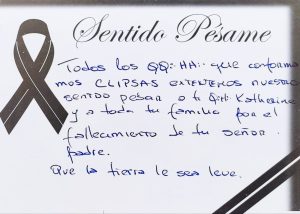 Sentido Pésame
Todos los QQ∴ HH∴ que conforma
mos CLIPSAS extendemos nuestro
sentido pesar a ti Katherine
y a toda tu familia por el
fallecimiento de tu señor
padre.
Que la tierra le sea leve.